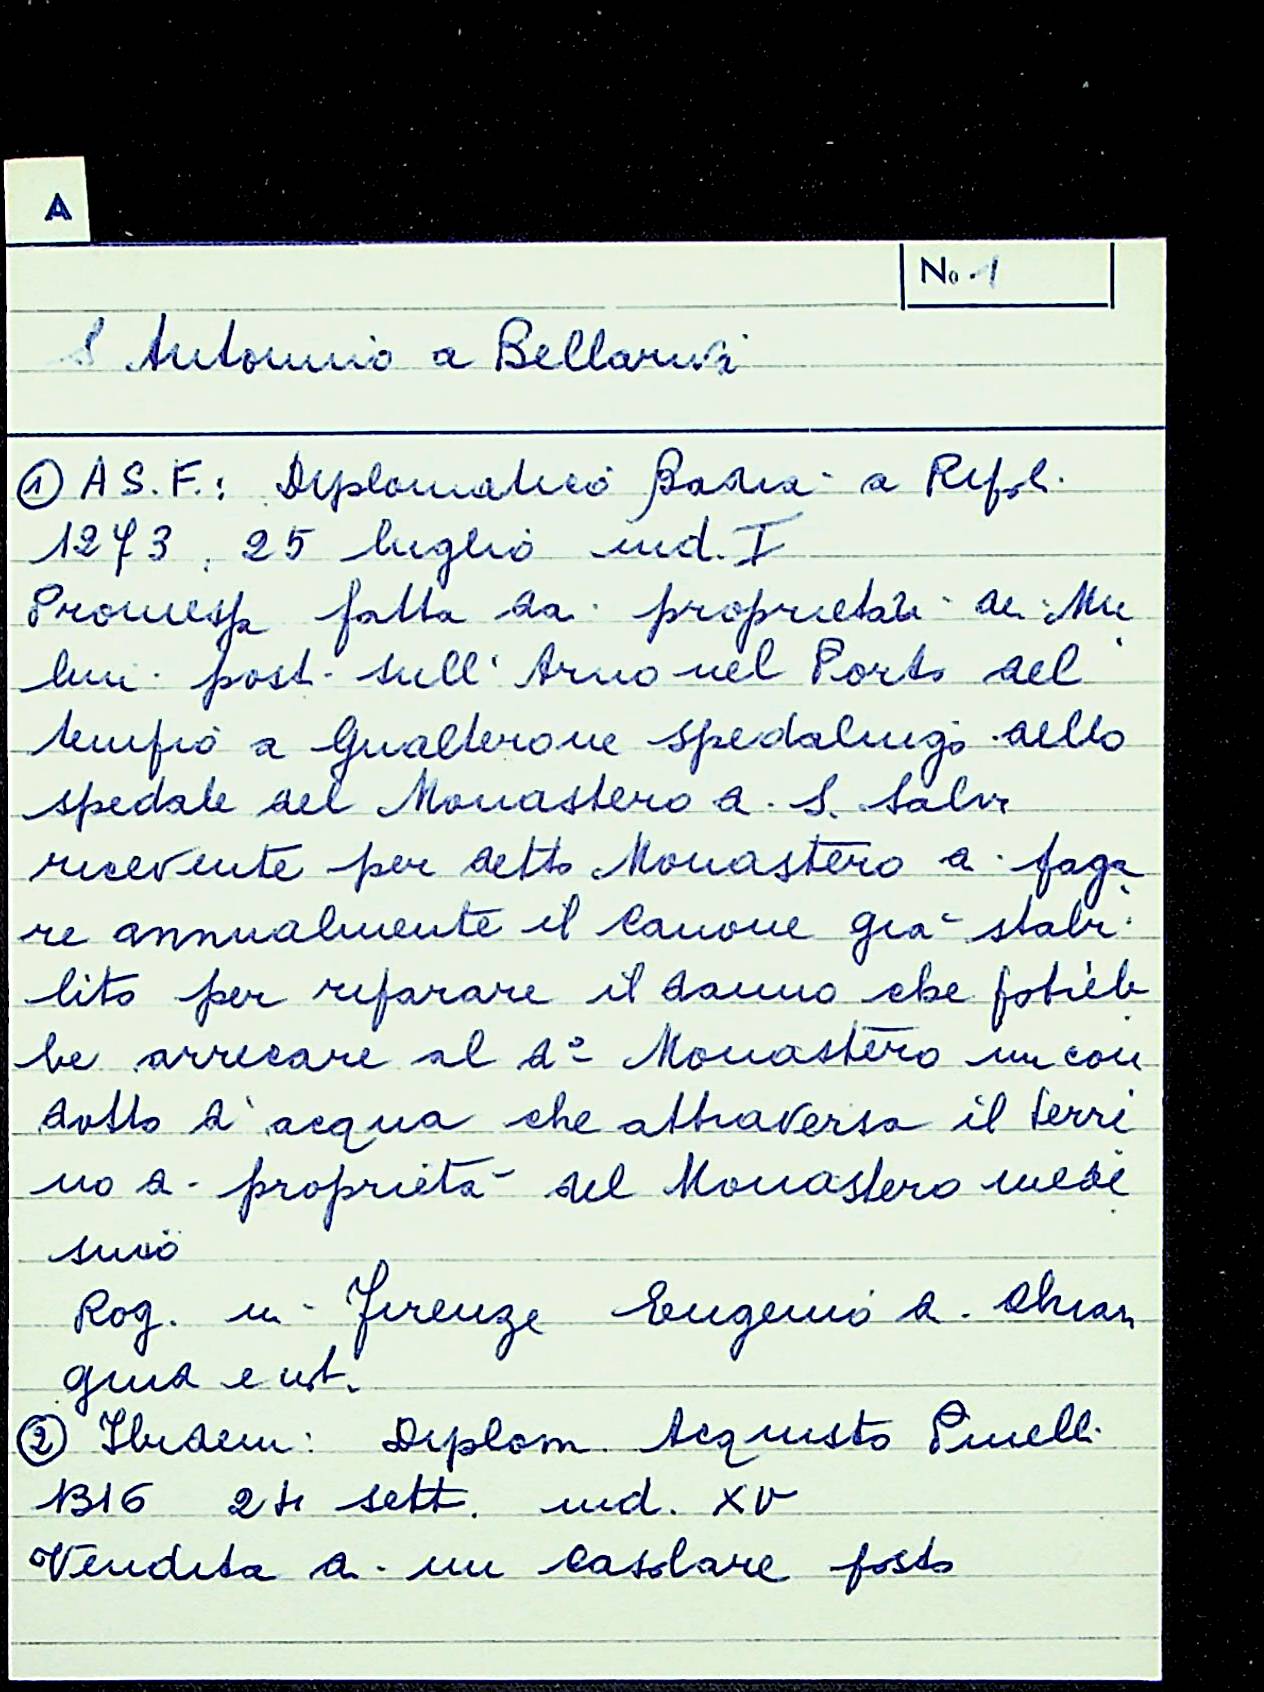 A
No. 1
S Antonio a Bellariva
① A S. F.: Diplomatico Badia a Ripoli
1273, 25 luglio ind. I
Promessa fatta dai proprietari dei Mu
lini posti sull' Arno nel Porto del
tempio a Gualterone spedalingo dello
spedale del Monastero di S. Salvi
ricevente per detto Monastero di paga
re annualmente il canone già stabi
lito per riparare il danno che potreb
be arrecare al dº Monastero un con
dotto d'acqua che attraversa il terre
no di proprietà del Monastero mede
simo
Rog. in Firenze Eugenio di
② Ibidem: Diplom. Acquisto Pinelli
1316 24 sett. ind. XV
Vendita di un casolare posto